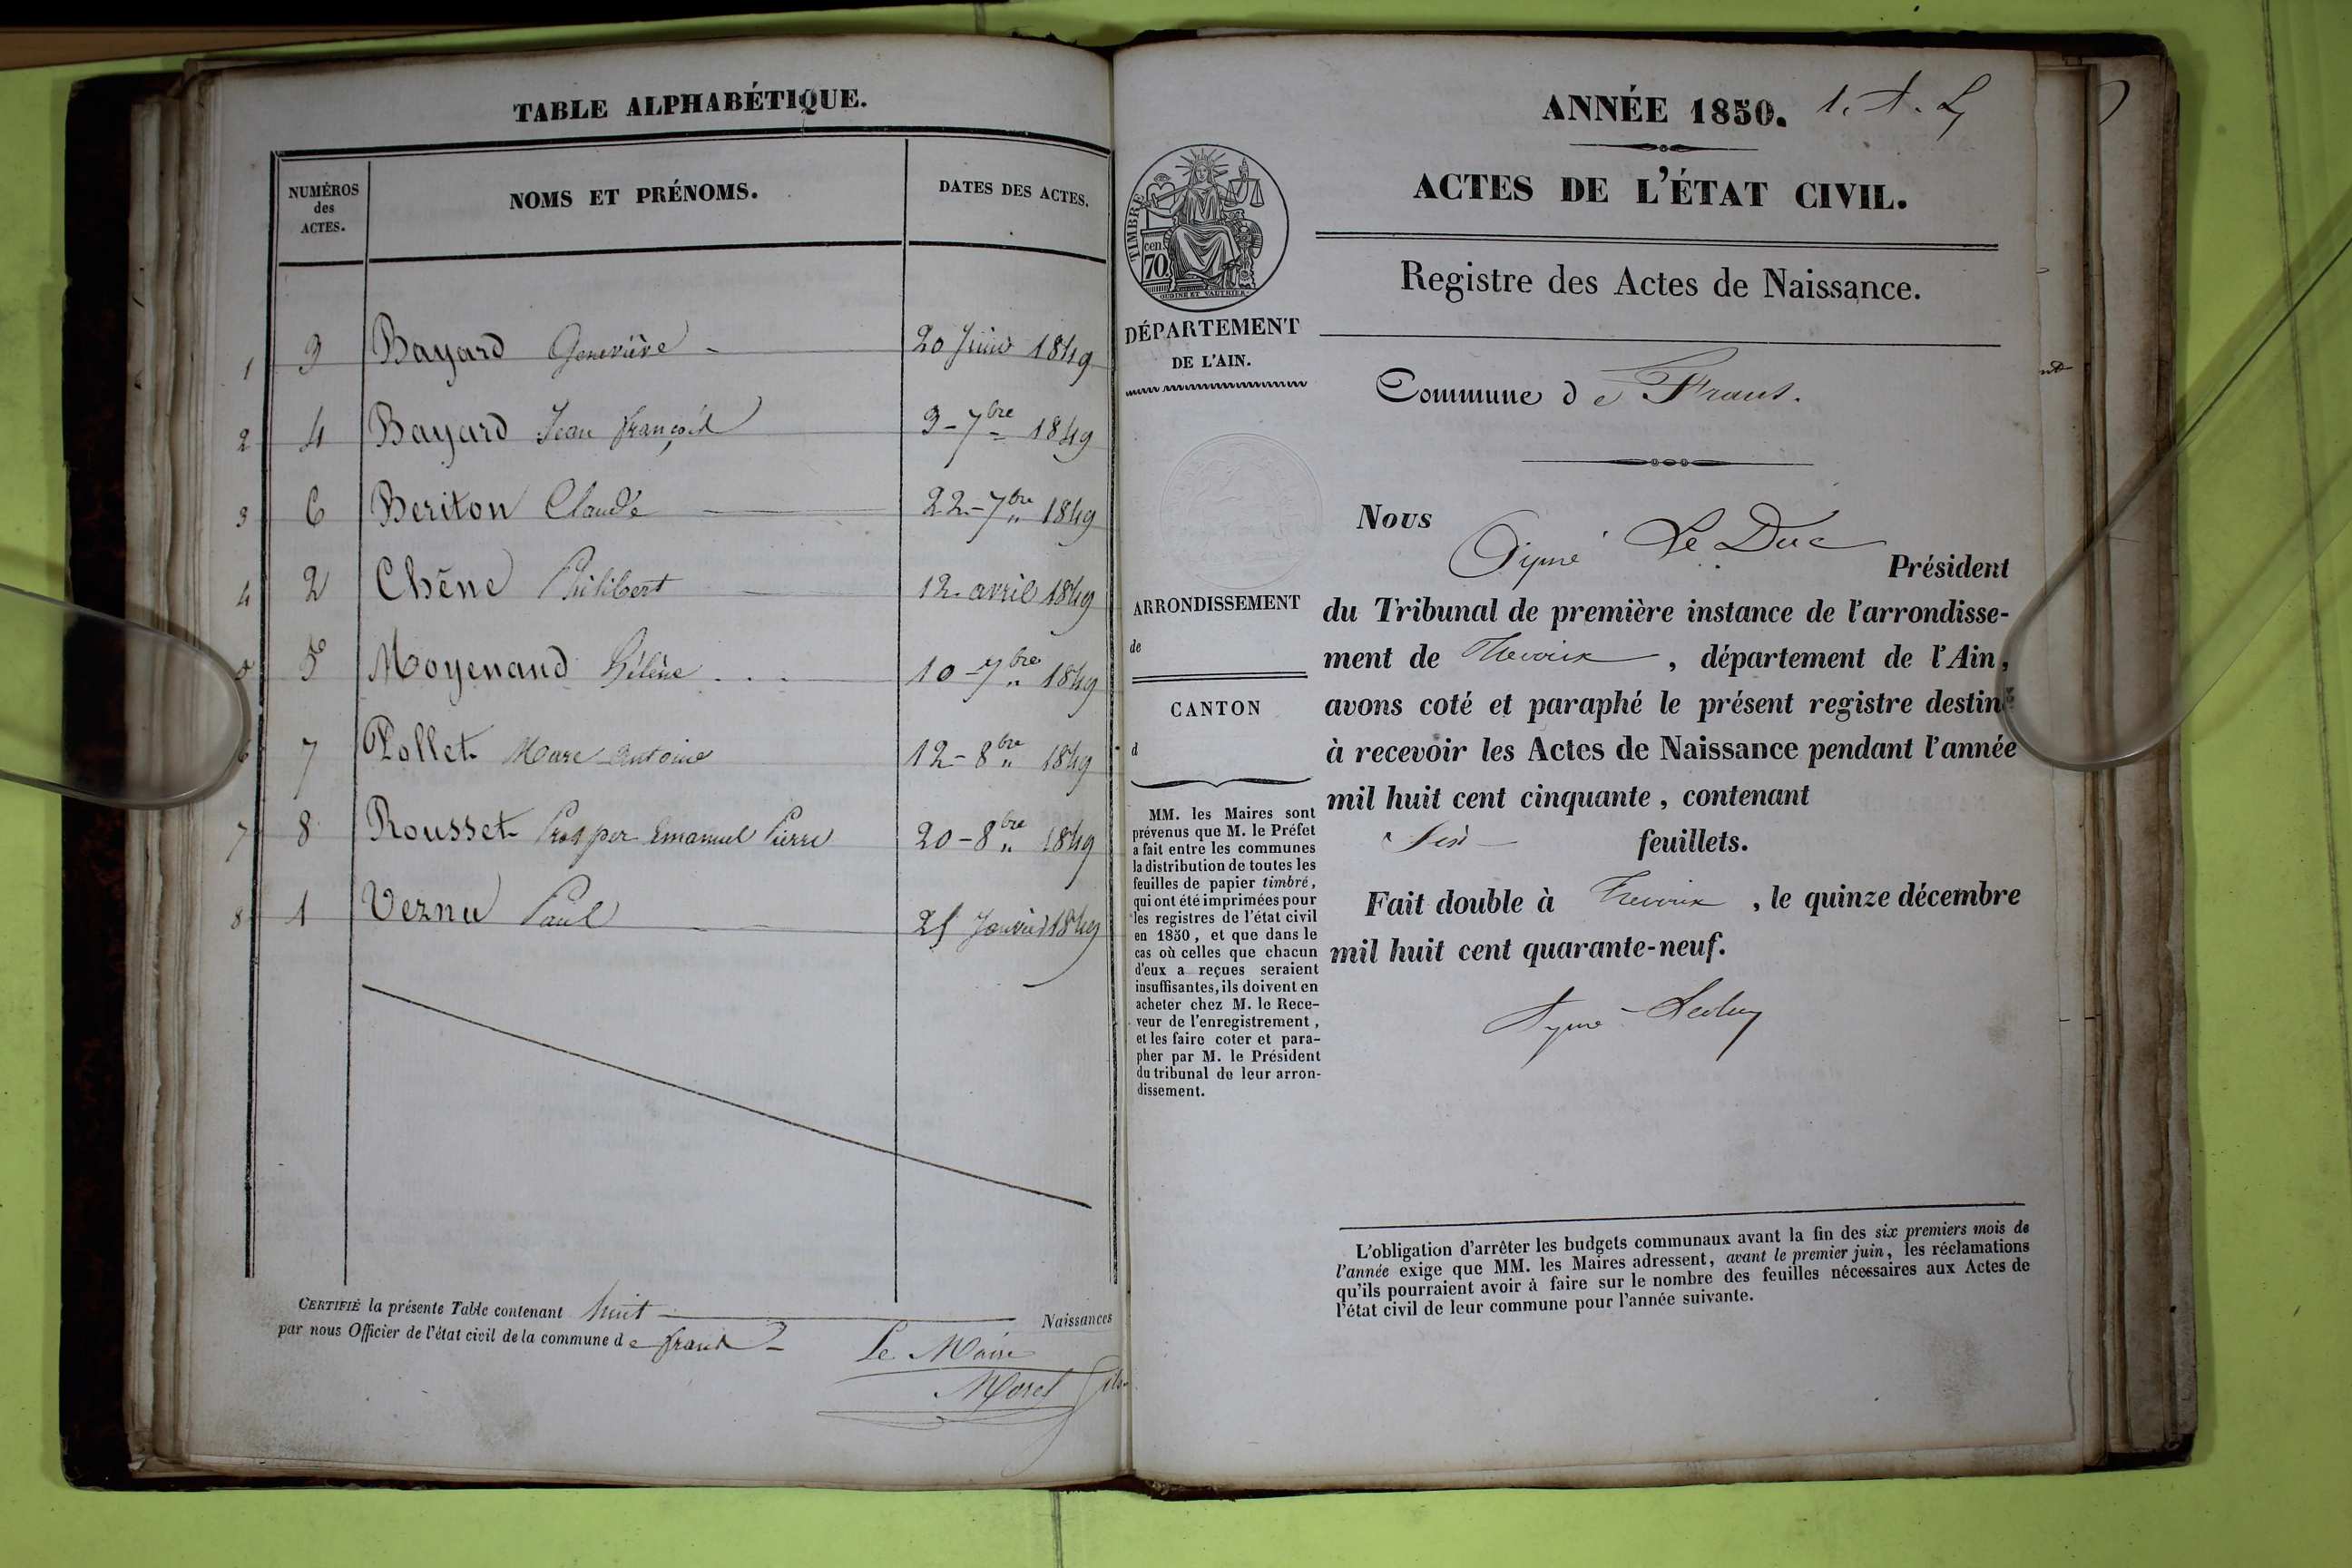 TABLE ALPHABÉTIQUE.
NUMÉROS des ACTES. NOMS ET PRÉNOMS. DATES DES ACTES.
1 3 Bayard Geneviève 20 Juin 1849
2 4 Bayard Jean françois 3-7bre 1849
3 6 Beriton Claude 22-7bre 1849
4 2 Chêne Philibert 12 avril 1849
5 5 Moyenand Hélène 10-7bre 1849
6 7 Pollet Marc Antoine 12-8bre 1849
7 8 Rousset Prosper Emanuel Pierre 20-8bre 1849
8 1 Vernu Paul Janvier 1849
CERTIFIÉ la présente Table contenant huit Naissances
par nous Officier de l'état civil de la commune de frans
Le Maire
Morel fils
ANNÉE 1850. 1.
ACTES DE L'ÉTAT CIVIL.
Registre des Actes de Naissance.
TIMBRE
cen. 70
OUDINÉ ET VAUTHIER
DÉPARTEMENT
DE L'AIN.
ARRONDISSEMENT
de
CANTON
d
MM. les Maires sont
prévenus que M. le Préfet
a fait entre les communes
la distribution de toutes les
feuilles de papier timbré,
qui ont été imprimées pour
les registres de l'état civil
en 1850, et que dans le
cas où celles que chacun
d'eux a reçues seraient
insuffisantes, ils doivent en
acheter chez M. le Rece-
veur de l'enregistrement,
et les faire coter et para-
pher par M. le Président
du tribunal de leur arron-
dissement.
Commune de Frans.
Nous Aymé Le Duc Président
du Tribunal de première instance de l'arrondisse-
ment de Trevoux, département de l'Ain,
avons coté et paraphé le présent registre destiné
à recevoir les Actes de Naissance pendant l'année
mil huit cent cinquante, contenant
Six feuillets.
Fait double à Trevoux, le quinze décembre
mil huit cent quarante-neuf.
Aymé Leduc
L'obligation d'arrêter les budgets communaux avant la fin des six premiers mois de
l'année exige que MM. les Maires adressent, avant le premier juin, les réclamations
qu'ils pourraient avoir à faire sur le nombre des feuilles nécessaires aux Actes de
l'état civil de leur commune pour l'année suivante.